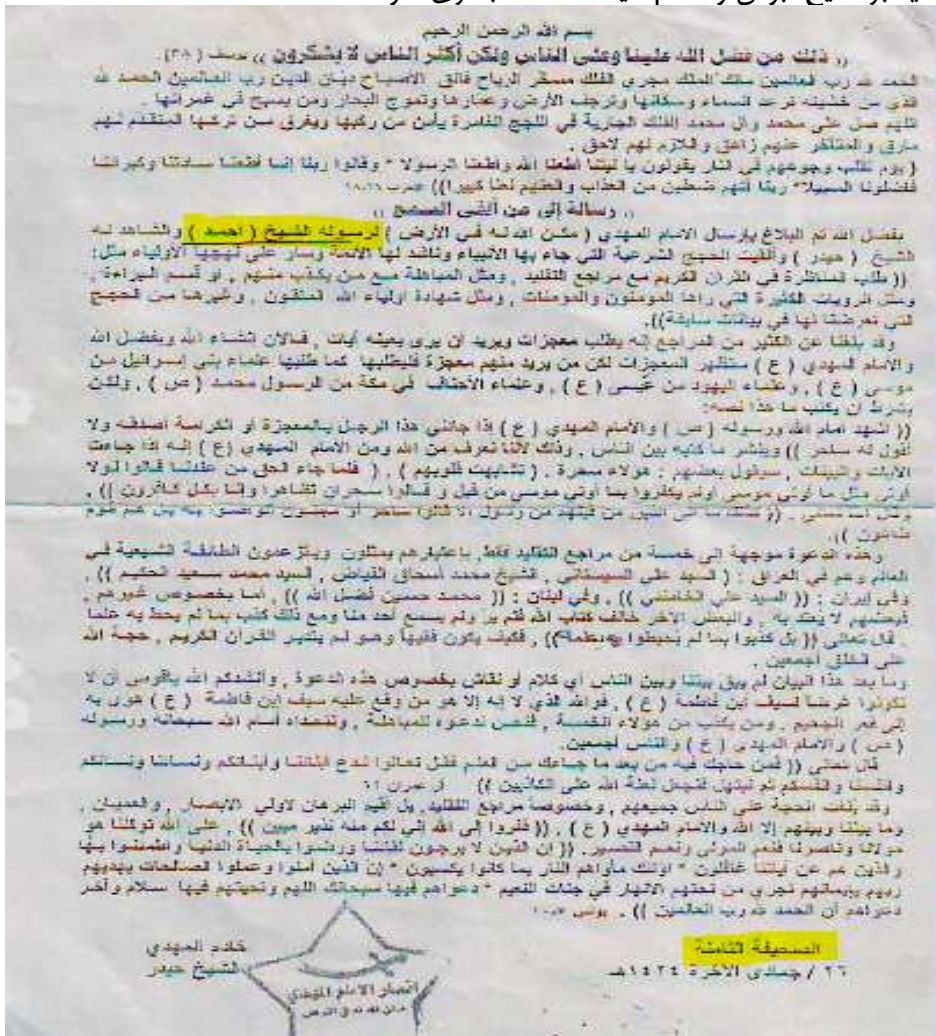 بسم الله الرحمن الرحيم
(( ذلك من فضل الله علينا وعلى الناس ولكن أكثر الناس لا يشكرون )) يوسف ( ٣٨ )
الحمد لله رب العالمين مالك الملك مجري الفلك مسخر الرياح فالق الأصباح ديان الدين رب العالمين الحمد لله
الذي من خشيته ترعد السماء وسكانها وترجف الأرض وعمارها وتموج البحار ومن يسبح في غمراتها .
اللهم صل على محمد وآل محمد الفلك الجارية في اللجج الغامرة يأمن من ركبها ويغرق من تركها المتقدم لهم
مارق والمتأخر عنهم زاهق واللازم لهم لاحق .
( يوم تقلب وجوههم في النار يقولون يا ليتنا أطعنا الله واطعنا الرسولا * وقالوا ربنا إنا أطعنا سادتنا وكبراءنا
فأضلونا السبيلا* ربنا آتهم ضعفين من العذاب والعنهم لعنا كبيرا))
(( رسالة إلى من ألقى السمع ))
بفضل الله تم البلاغ بإرسال الامام المهدي ( مكن الله له في الأرض ) لرسوله الشيخ ( احمد ) والشاهد له
الشيخ ( حيدر ) وألقيت الحجج الشرعية التي جاء بها الأنبياء وناشد لها الأئمة وسار على نهجها الأولياء مثل:
(( طلب المناظرة في القران الكريم مع مراجع التقليد , ومثل المباهلة مع من يكذب منهم , او قسم البراءة ,
ومثل الرويات الكثيرة التي راها المؤمنون والمؤمنات , ومثل شهادة اولياء الله المتقون , وغيرها من الحجج
التي تعرضنا لها في بيانات سابقة)).
وقد بلغنا عن الكثير من المراجع إنه يطلب معجزات ويريد ان يرى بعينه آيات , فالان انشاء الله وبفضل الله
والامام المهدي ( ع ) ستظهر المعجزات لكن من يريد منهم معجزة فليطلبها كما طلبها علماء بني إسرائيل من
موسى ( ع ) , وعلماء اليهود من عيسى ( ع ) , وعلماء الأحناف في مكة من الرسول محمد ( ص ) , ولكن
بشرط ان يكتب ما هذا نصه:
(( اشهد امام الله ورسوله ( ص ) والامام المهدي ( ع ) إذا جائني هذا الرجل بالمعجزة أو الكرامة اصدقه ولا
أقول له ساحر )) وينشر ما كتبه بين الناس , وذلك لأننا نعرف من الله ومن الأمام المهدي (ع ) إنه اذا جاءت
الآيات والبينات , سيقول بعضهم : هؤلاء سحرة , ( تشابهت قلوبهم ) , ( فلما جاء الحق من عندنا قالوا لولا
أوتي مثل ما أوتي موسى أولم يكفروا بما أوتي موسى من قبل و قالوا سحران تظاهرا وإنا بكل كافرون )) ,
طاغون )).
وهذه الدعوة موجهة إلى خمسة من مراجع التقليد فقط, باعتبارهم يمثلون ويتزعمون الطائفة الشيعية في
العالم وهم في العراق : ( السيد علي السيستاني , الشيخ محمد أسحاق الفياض , السيد محمد سعيد الحكيم )) ,
وفي إيران : (( السيد علي الخامنئي )) , وفي لبنان : (( محمد حسين فضل الله )) , أما بخصوص غيرهم ,
فبعضهم لا يعتد به , والبعض الآخر خالف كتاب الله فلم ير ولم يسمع أحد منا ومع ذلك كتب بما لم يحط به علما
, قال تعالى (( بل كذبوا بما لم يحيطوا بعلمه)) , فكيف يكون فقيهاً وهو لم يتدبر القران الكريم , حجة الله
على الخلق أجمعين .
وما بعد هذا البيان لم يبق بيننا وبين الناس أي كلام أو نقاش بخصوص هذه الدعوة , وأنشدكم الله ياقومي أن لا
تكونوا غرضا لسيف ابن فاطمة ( ع ) , فوالله الذي لا إله إلا هو من وقع عليه سيف ابن فاطمة ( ع ) هوى به
إلى قعر الجحيم , ومن يكذب من هؤلاء الخمسة , فنحن ندعوه للمباهلة , ونتحداه أمام الله سبحانه ورسوله
( ص ) والامام المهدي ( ع ) والناس اجمعين.
قال تعالى (( فمن حاجك فيه من بعد ما جاءك من العلم فقل تعالوا ندع أبناءنا وأبناءكم ونساءنا ونساءكم
وأنفسنا وأنفسكم ثم نبتهل فنجعل لعنة الله على الكاذبين )) عمران ٦١
وقد بلغت الحجة على الناس جميعهم , وخصوصا مراجع التقليد, بل اقيم البرهان لاولي الابصار , والعميان ,
وما بيننا وبينهم إلا الله والامام المهدي ( ع ) , (( ففروا إلى الله إني لكم منه نذير مبين )) , على الله توكلنا هو
مولانا وناصرنا فنعم المولى ونعم النصير, (( ان الذين لا يرجون لقاءنا ورضوا بالحياة الدنيا واطمئنوا بها
والذين هم عن آياتنا غافلون * اولئك مأواهم النار بما كانوا يكسبون * إن الذين آمنوا وعملوا الصالحات يهديهم
ربهم بإيمانهم تجري من تحتهم الأنهار في جنات النعيم * دعواهم فيها سبحانك اللهم وتحيتهم فيها سلام وآخر
دعواهم أن الحمد لله رب العالمين )) . يونس
الصحيفة الثامنة
٢٦ / جمادى الآخرة ١٤٢٤هـ
خادم المهدي
الشيخ حيدر
انصار الامام المهدي